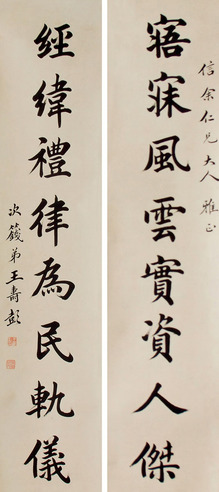 信余仁兄大人雅正
寤寐風雲實資人傑
經緯禮律為民軌儀
次籛弟王壽彭